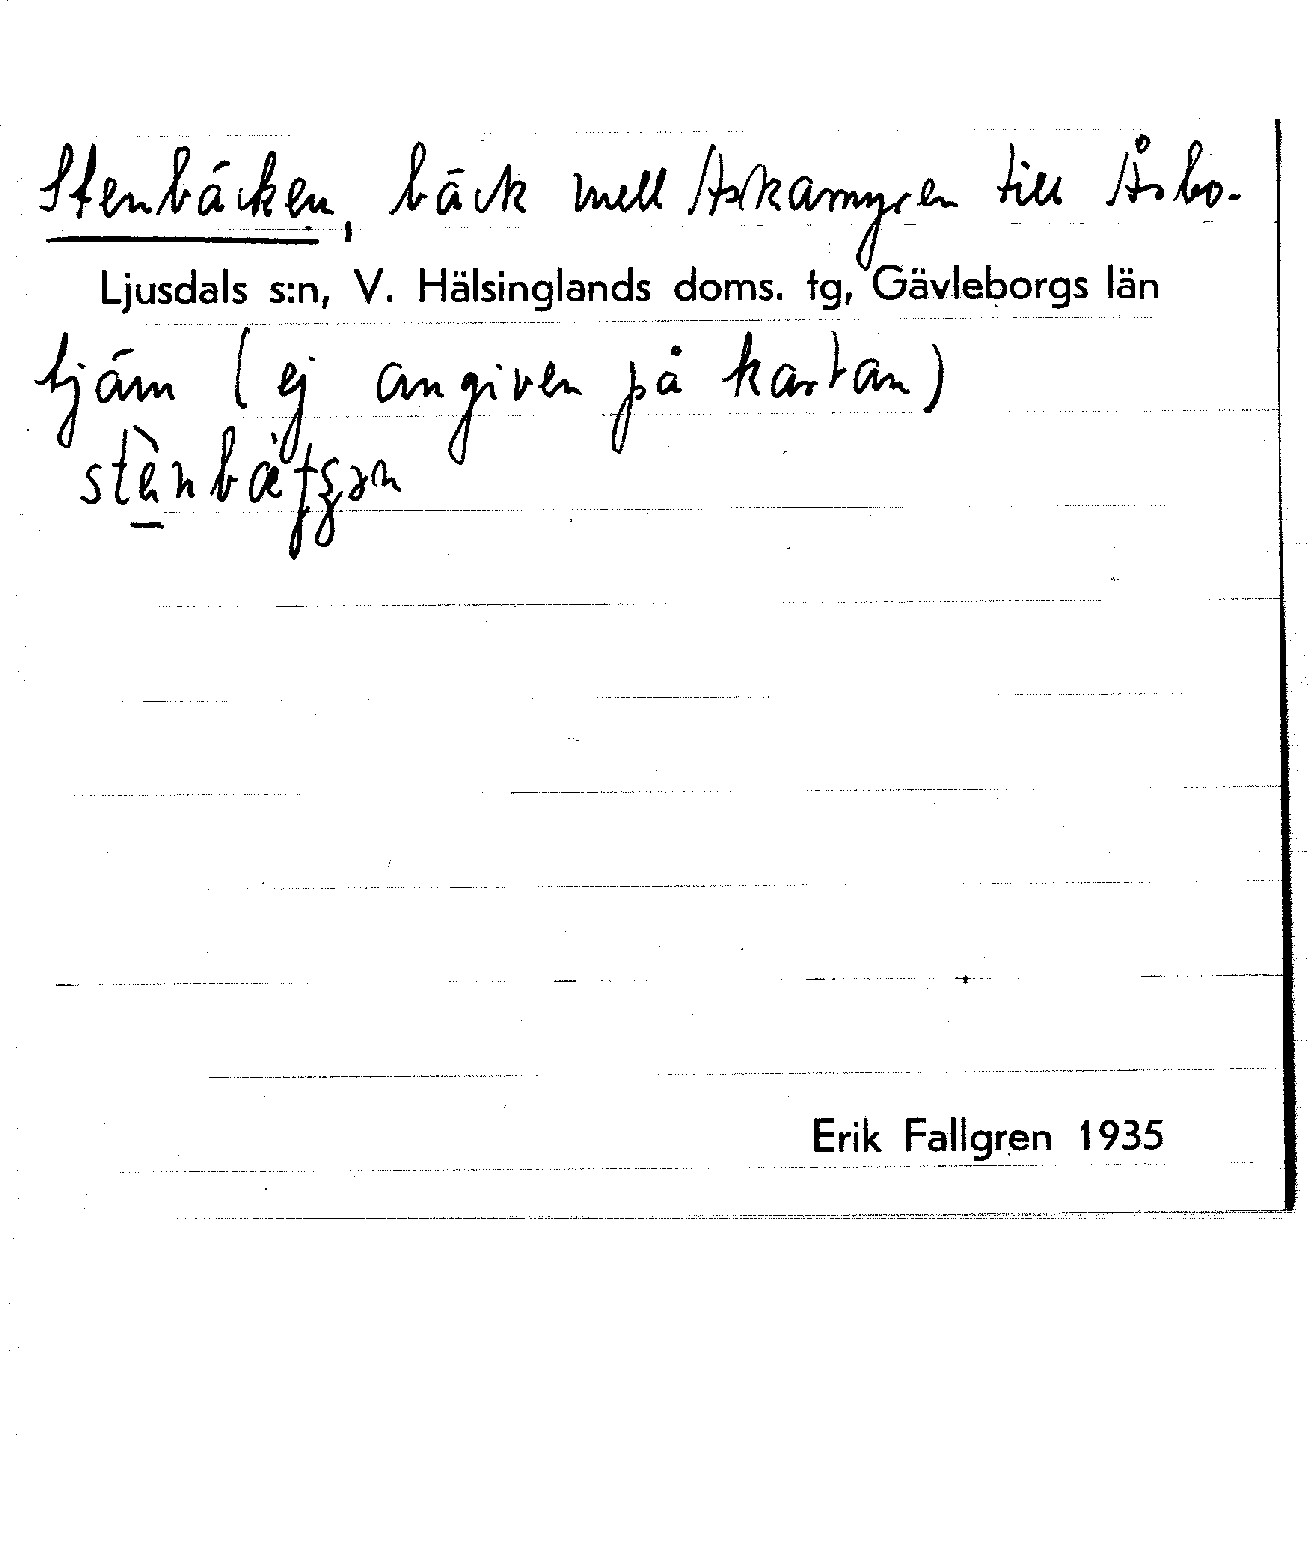 Stenbäcken, bäck mell Askamyren till Åsbo-
Ljusdals s:n, V. Hälsinglands doms. tg, Gävleborgs län
tjärn (ej angiven på kartan)
Erik Fallgren 1935